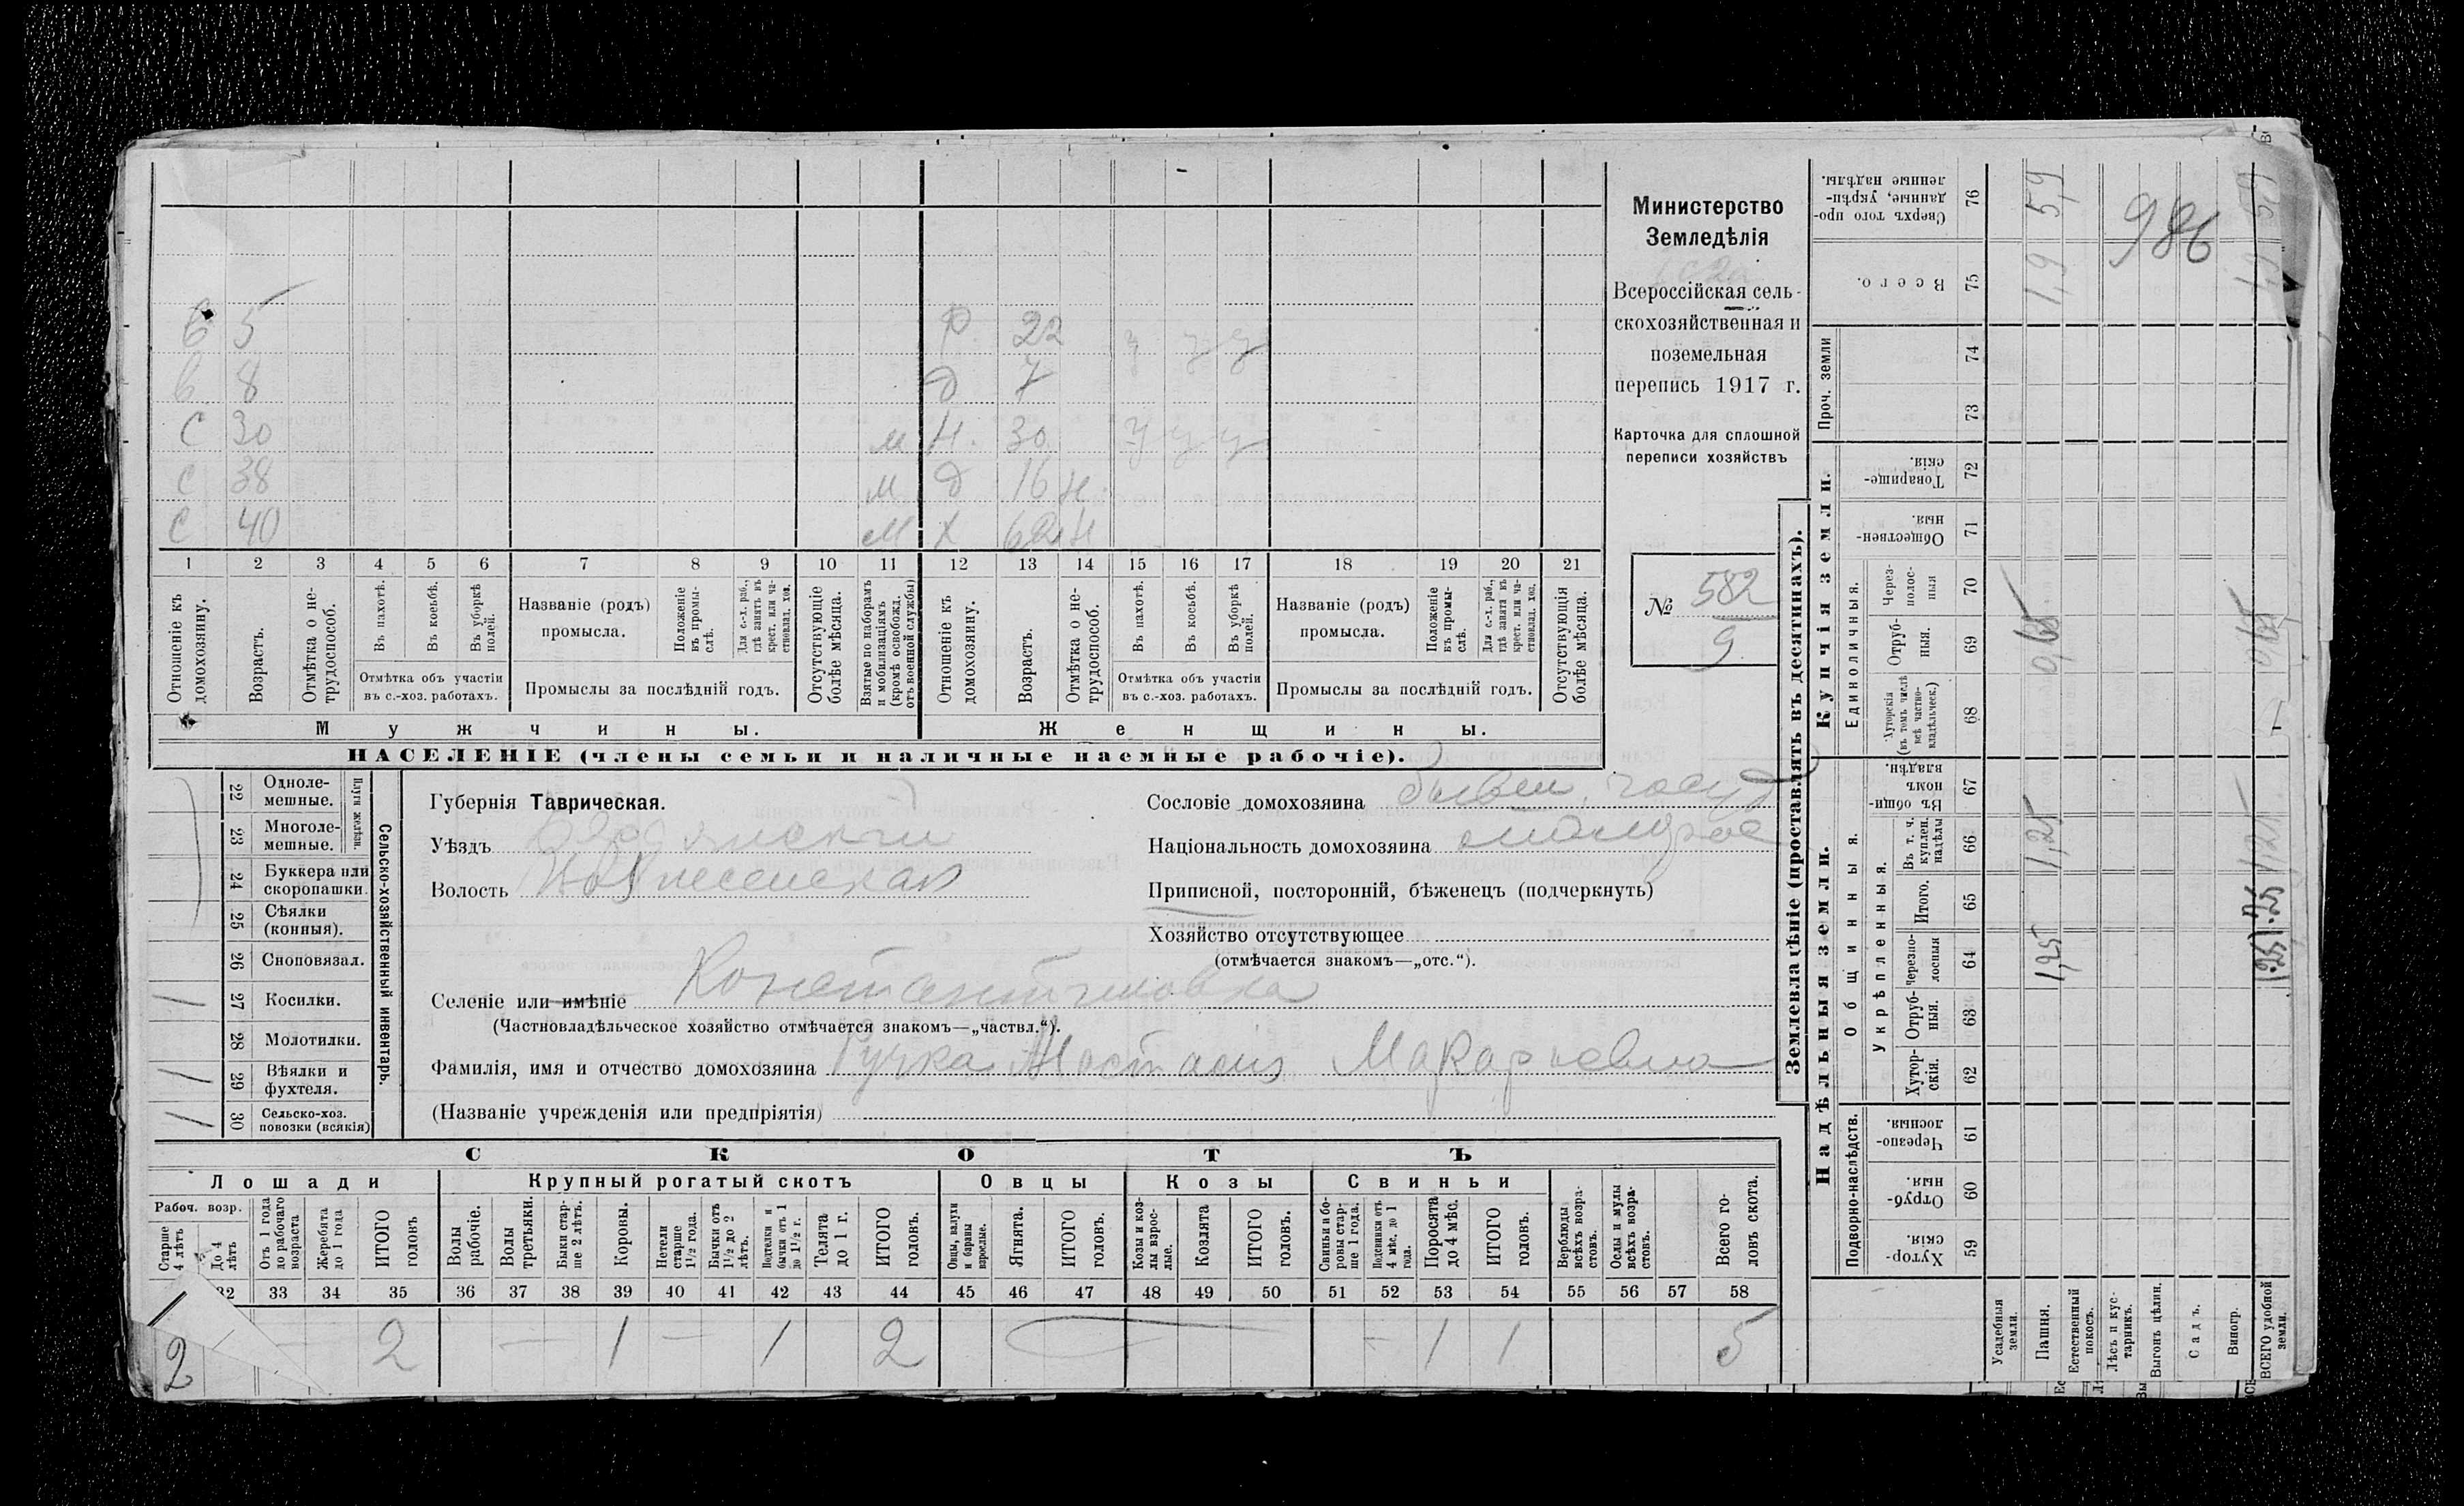 Министерство
Земледѣлія
Всероссійская сель-
скохозяйственная и
поземельная
перепись 1917 г.
Карточка для сплошной
переписи хозяйствъ
№ 582
9
в 5 Р 22 у у у
в 8 д 7
С 30 м Н. 30 У у у
С 38 м д 16 н
С 40 м Х 62 н
1 2 3 4 5 6 7 8 9 10 11 12 13 14 15 16 17 18 19 20 21
Отношеніе къ домохозяину.
Возрастъ.
Отмѣтка о не-
трудоспособ.
Въ пахотѣ.
Въ косьбѣ.
Въ уборкѣ полей.
Отмѣтка объ участіи
въ с.-хоз. работахъ.
Названіе (родъ)
промысла.
Положеніе въ промы-
слѣ.
Для с.-х. раб.,
гдѣ занятъ въ
крест. или ча-
стновлад. хоз.
Промыслы за послѣдній годъ.
Отсутствующіе
болѣе мѣсяца.
Взятые по наборамъ
и мобилизаціямъ
(кромѣ освобожд.
отъ военной службы)
Отношеніе къ
домохозяину.
Возрастъ.
Отмѣтка о не-
трудоспособ.
Въ пахотѣ.
Въ косьбѣ.
Въ уборкѣ полей.
Отмѣтка объ участіи
въ с.-хоз. работахъ.
Названіе (родъ)
промысла.
Положеніе въ промы-
слѣ.
Для с.-х. раб.,
гдѣ занята въ
крест. или ча-
стновлад. хоз.
Промыслы за послѣдній годъ.
Отсутствующія
болѣе мѣсяца.
Мужчины.
Женщины.
НАСЕЛЕНІЕ (члены семьи и наличные наемные рабочіе).
Сельско-хозяйственный инвентарь.
Плуги желѣзн.
22 Одноле-
мешные.
23 Многоле-
мешные.
24 Буккера или
скоропашки.
25 Сѣялки
(конныя).
26 Сноповязал.
27 Косилки. 1
28 Молотилки.
29 Вѣялки и
фухтеля. 1
30 Сельско-хоз.
повозки (всякія) 1
Губернія Таврическая.
Уѣздъ Бердянскій
Волость
Сословіе домохозяина бывш. госуд
Національность домохозяина малорос
Приписной, посторонній, бѣженецъ (подчеркнуть)
Хозяйство отсутствующее
(отмѣчается знакомъ—„отс.“).
Селеніе или имѣніе Константиновка
(Частновладѣльческое хозяйство отмѣчается знакомъ—„частвл.“).
Фамилія, имя и отчество домохозяина Ручка Макарьевна
(Названіе учрежденія или предпріятія)
СКОТЪ
Лошади
Крупный рогатый скотъ
Овцы
Козы
Свиньи
Рабоч. возр.
Старше 4 лѣтъ
До 4 лѣтъ
Отъ 1 года
до рабочаго
возраста
Жеребята
до 1 года
ИТОГО
головъ
Волы
рабочіе.
Волы
третьяки.
Быки стар-
ше 2 лѣтъ.
Коровы.
Нетели
старше
1½ года.
Бычки отъ
1½ до 2
лѣтъ.
Подтелки и
бычки отъ 1
до 1½ г.
Телята
до 1 г.
ИТОГО
головъ.
Овцы, валухи
и бараны
взрослые.
Ягнята.
ИТОГО
головъ.
Козы и коз-
лы взрос-
лые.
Козлята
ИТОГО
головъ.
Свиньи и бо-
ровы стар-
ше 1 года.
Подсвинки отъ
4 мѣс. до 1
года.
Поросята
до 4 мѣс.
ИТОГО
головъ.
Верблюды
всѣхъ возра-
стовъ.
Ослы и мулы
всѣхъ возра-
стовъ.
Всего го-
ловъ скота.
32 33 34 35 36 37 38 39 40 41 42 43 44 45 46 47 48 49 50 51 52 53 54 55 56 57 58
2 2 — 1 — 1 2 — 1 1 5
Землевладѣніе (проставлять въ десятинахъ).
Надѣльныя земли.
Купчія земли.
Проч. земли
Подворно-наслѣдств.
Общинныя.
Укрѣпленныя.
Единоличныя.
Хутор-
скія. 59
Отруб-
ныя. 60
Черезпо-
лосныя. 61
Хутор-
скія. 62
Отруб-
ныя. 63
Черезпо-
лосныя 64
Итого. 65
Въ т. ч.
куплен.
надѣлы 66
Въ общи-
номъ
владѣн. 67
Хуторскія
(въ томъ числѣ
всѣ частно-
владѣльческ.) 68
Отруб-
ныя. 69
Через-
полос-
ныя 70
Обществен-
ныя. 71
Товарище-
скія. 72
73
74
Всего. 75
Сверхъ того про-
данные, укрѣп-
ленные надѣлы. 76
Усадебныя
земли.
Пашня.
Естественный
покосъ.
Лѣсъ и кус-
тарникъ.
Выгонъ цѣлин.
Садъ.
Виногр.
ВСЕГО удобной
земли.
1,25 1,25 0,65 1,9 5,9
986
1.25 1.25 1,25 0,65 1,9 5,9